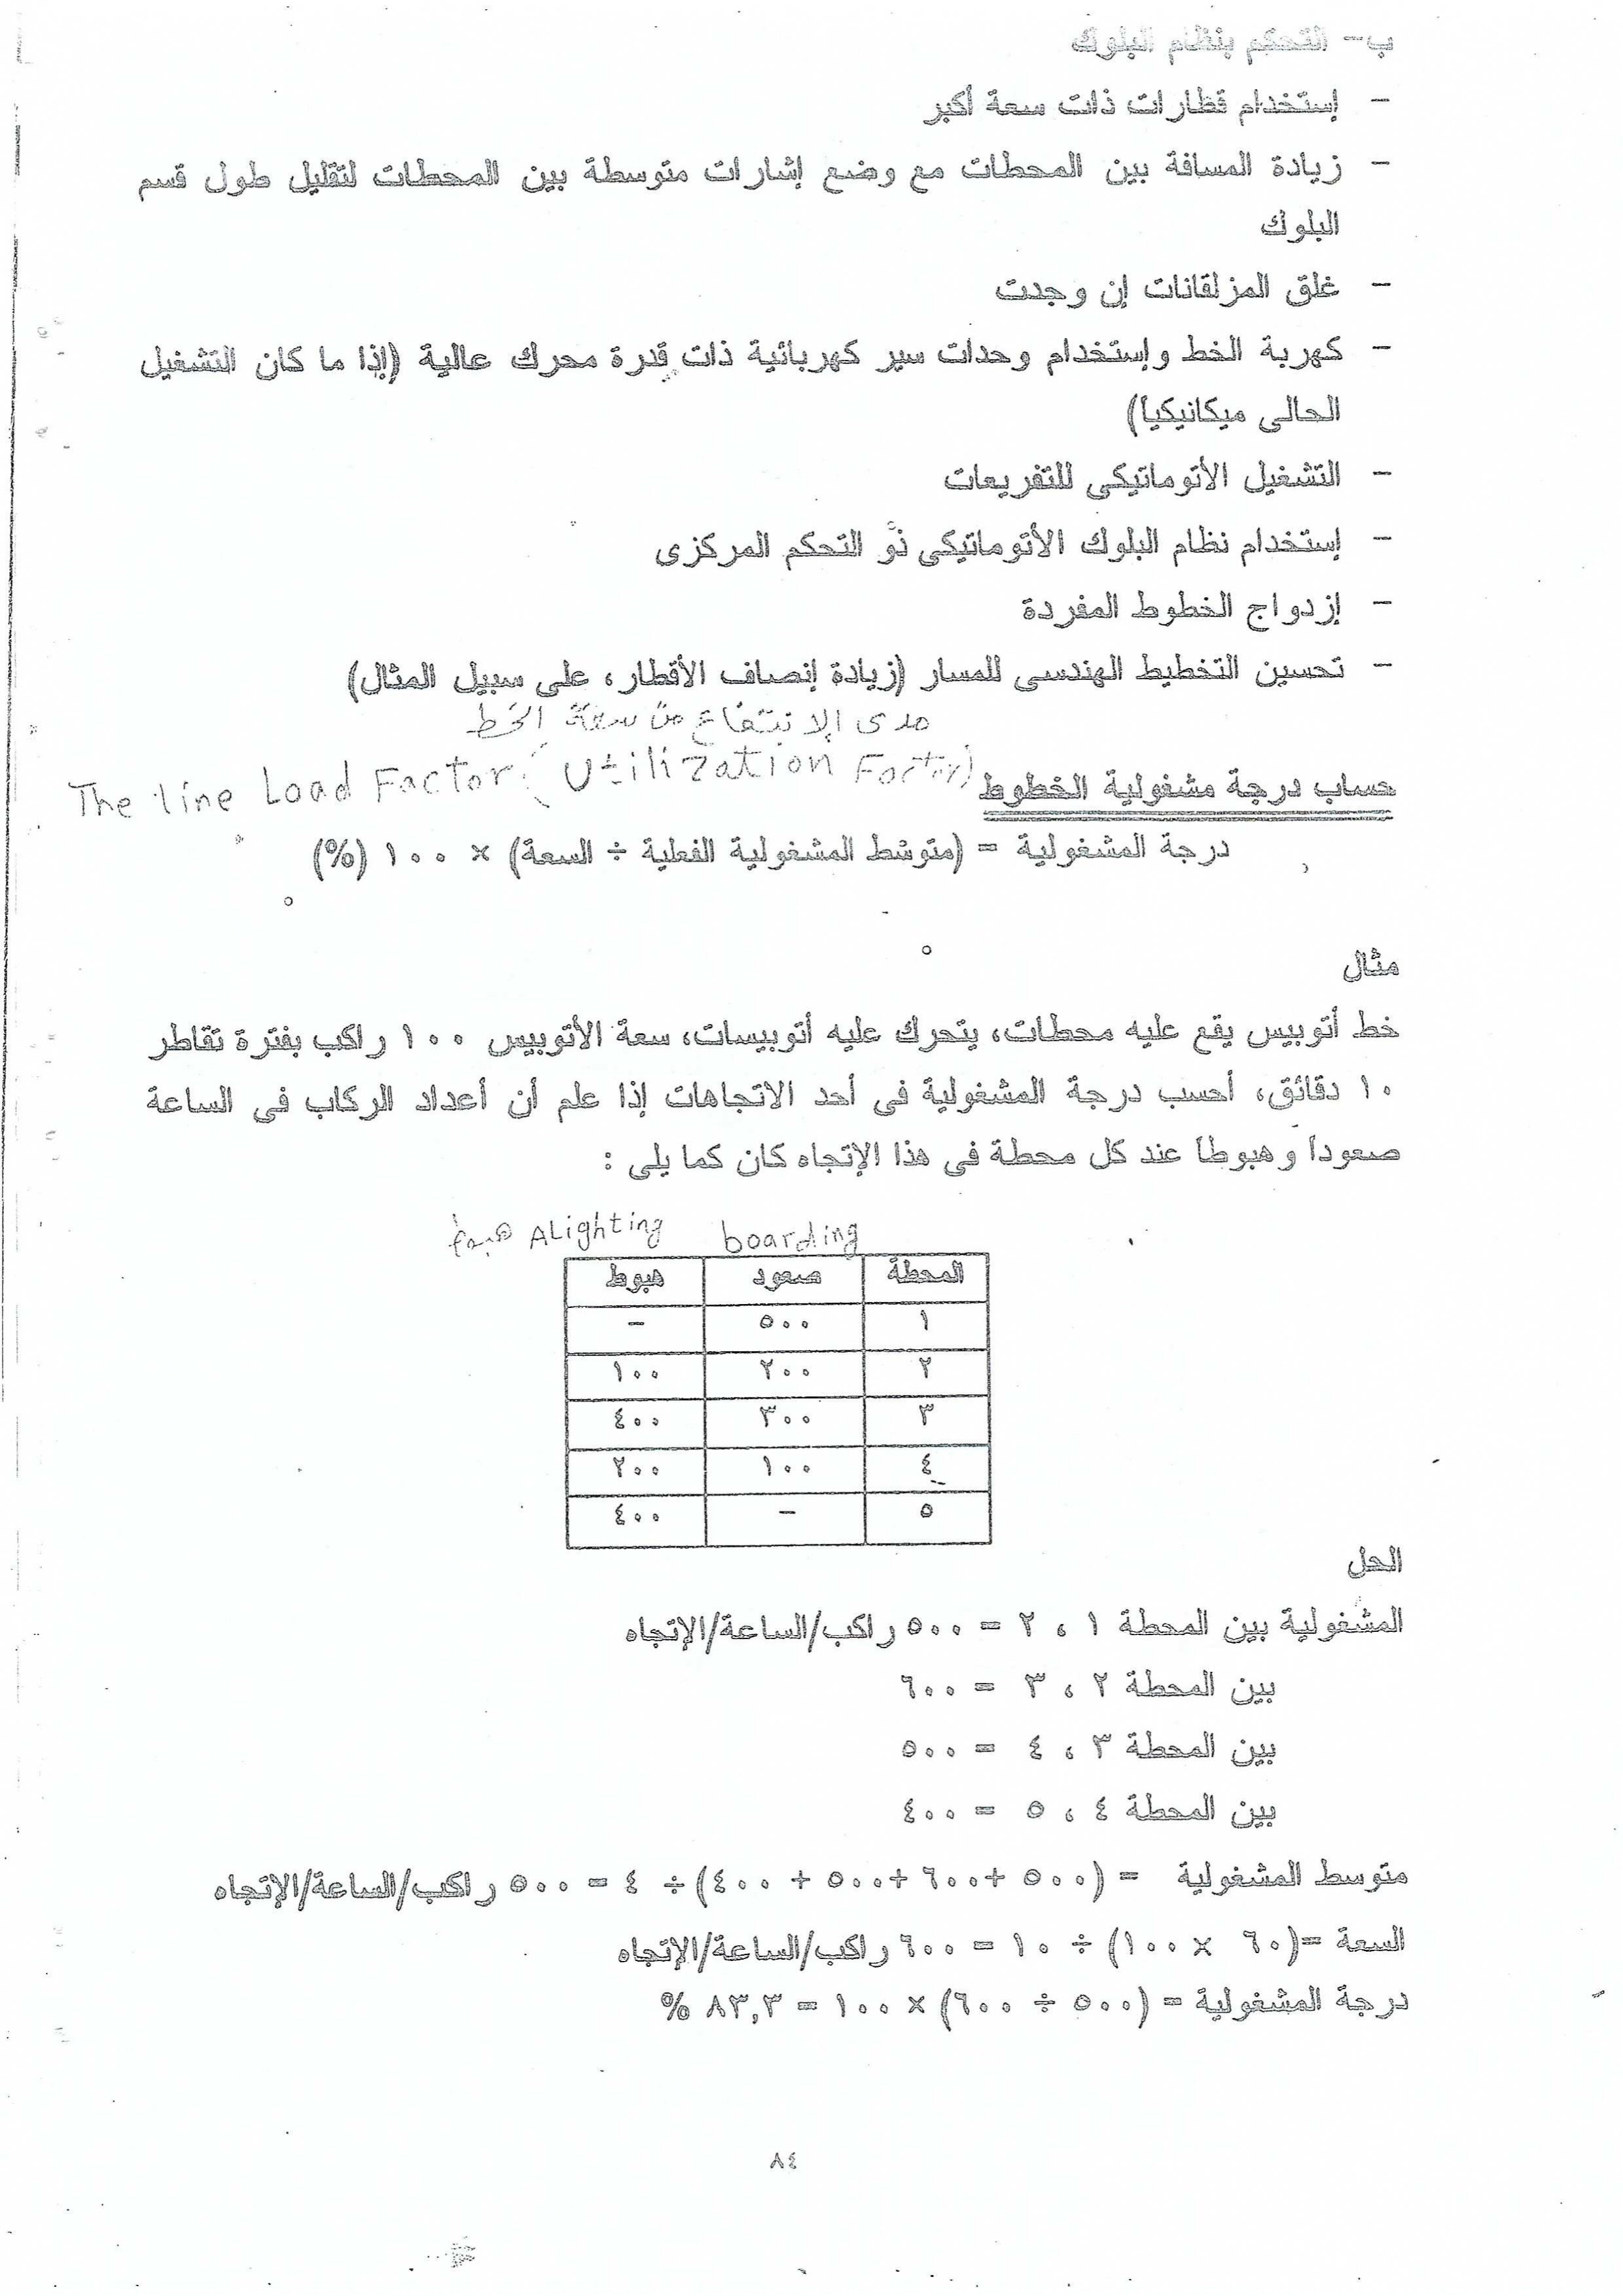 ب- التحكم بنظام البلوك
- إستخدام قطارات ذات سعة أكبر
- زيادة المسافة بين المحطات مع وضع إشارات متوسطة بين المحطات لتقليل طول قسم
البلوك
- غلق المزلقانات إن وجدت
- كهربة الخط وإستخدام وحدات سير كهربائية ذات قدرة محرك عالية (إذا ما كان التشغيل
الحالى ميكانيكياً)
- التشغيل الأتوماتيكى للتفريعات
- إستخدام نظام البلوك الأتوماتيكى ذو التحكم المركزى
- إزدواج الخطوط المفردة
- تحسين التخطيط الهندسى للمسار (زيادة إنصاف الأقطار، على سبيل المثال)
مدى الانتفاع من سعة الخط
حساب درجة مشغولية الخطوط The line Load Factor (Utilization Factor)
درجة المشغولية = (متوسط المشغولية الفعلية ÷ السعة) × ١٠٠ (%)
مثال
خط أتوبيس يقع عليه محطات، يتحرك عليه أتوبيسات، سعة الأتوبيس ١٠٠ راكب بفترة تقاطر
١٠ دقائق، أحسب درجة المشغولية فى أحد الاتجاهات إذا علم أن أعداد الركاب فى الساعة
صعوداً وهبوطاً عند كل محطة فى هذا الإتجاه كان كما يلى :
boarding ALighting هبوط
المحطة صعود هبوط
١ ٥٠٠ -
٢ ٢٠٠ ١٠٠
٣ ٣٠٠ ٤٠٠
٤ ١٠٠ ٢٠٠
٥ - ٤٠٠
الحل
المشغولية بين المحطة ١ ، ٢ = ٥٠٠ راكب/الساعة/الإتجاه
بين المحطة ٢ ، ٣ = ٦٠٠
بين المحطة ٣ ، ٤ = ٥٠٠
بين المحطة ٤ ، ٥ = ٤٠٠
متوسط المشغولية = (٥٠٠ +٦٠٠ +٥٠٠ + ٤٠٠) ÷ ٤ = ٥٠٠ راكب/الساعة/الإتجاه
السعة =(٦٠ × ١٠٠) ÷ ١٠ = ٦٠٠ راكب/الساعة/الإتجاه
درجة المشغولية = (٥٠٠ ÷ ٦٠٠) × ١٠٠ = ٨٣,٣ %
٨٤